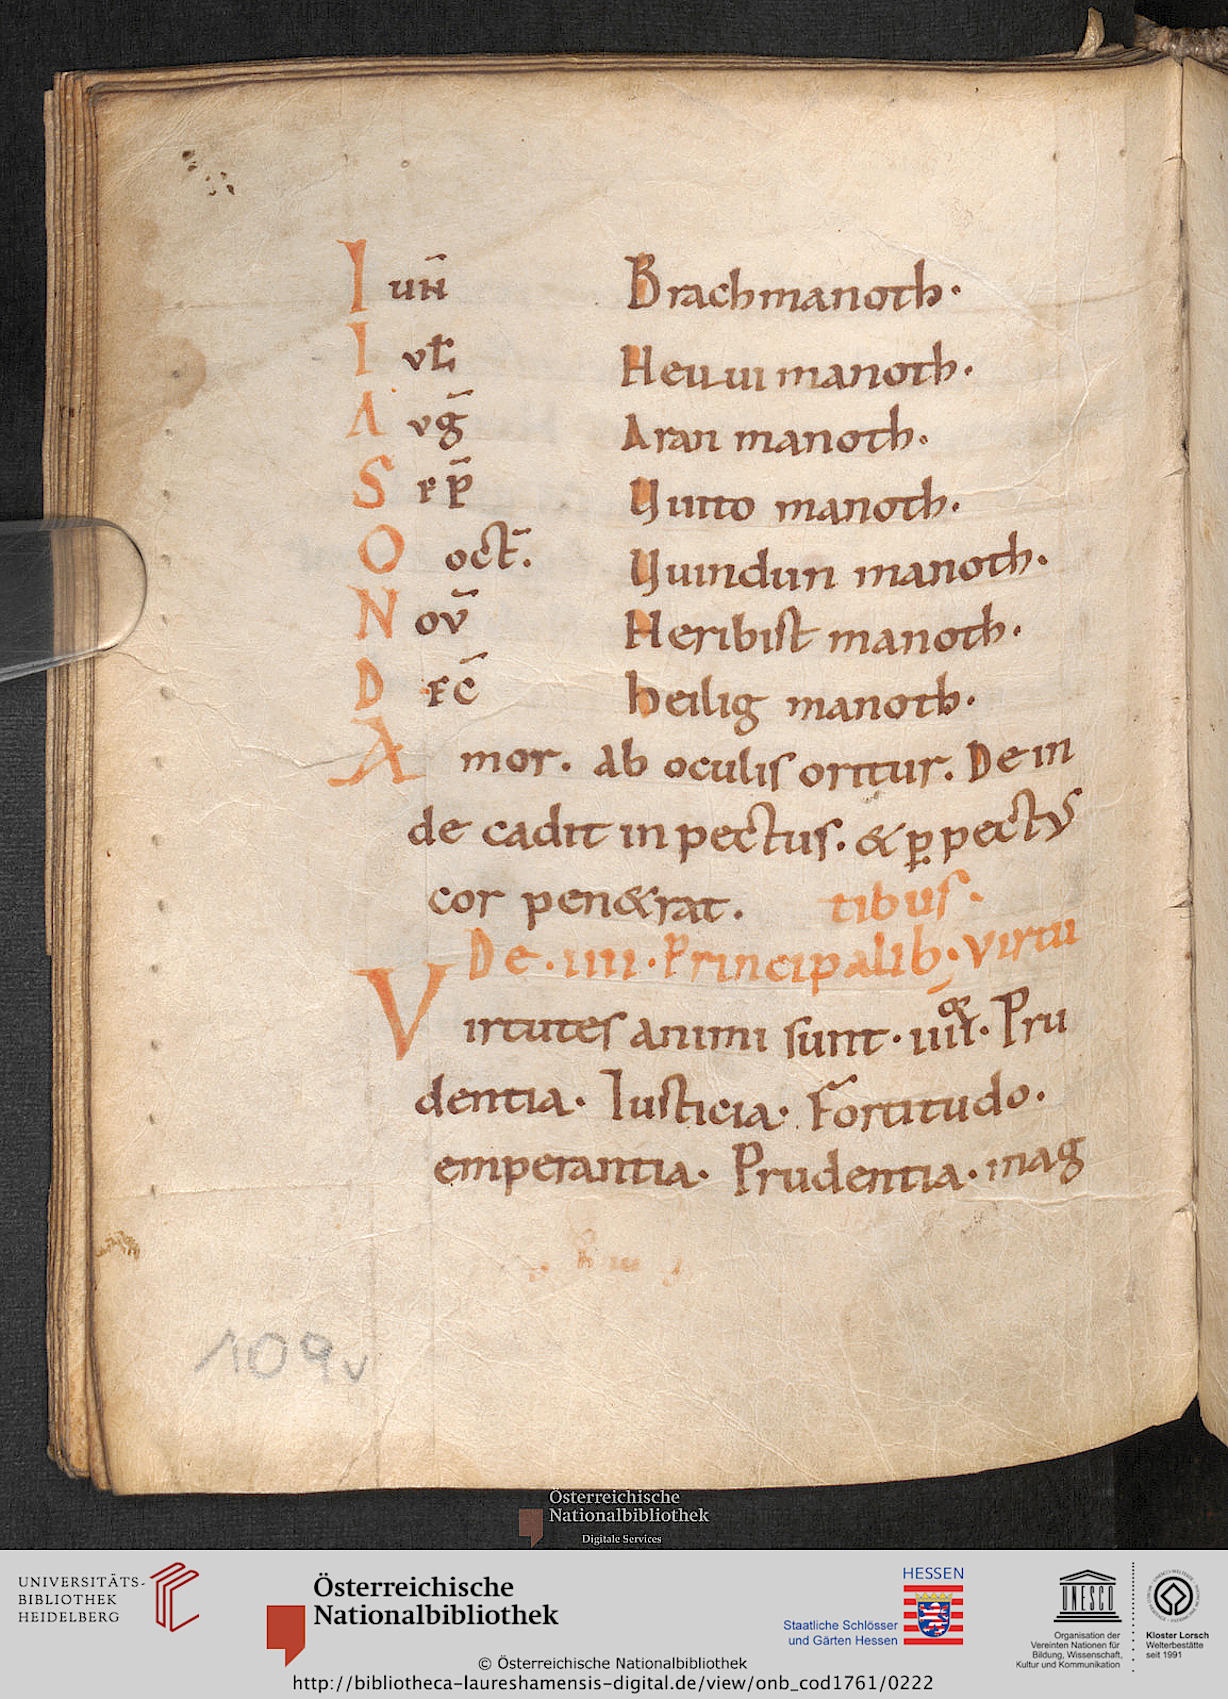 Iuñ Brachmanoth·
Iul̃ Heuuimanoth·
Avg̃ Aran manoth·
Sep̃ Uuito manoth·
Ooct̃. Uuindun manoth·
Nov̄ Heribist manoth·
Dec̄ heilig manoth·
Amor. Ab oculis oritur. Dein
de cadit in pectus. & ꝑ pectus
cor pen&rat. tibus.
De · IIII · Principalib; Virtu
Virtutes animi sunt · iiiior · Pru
dentia · Iusticia · Fortitudo ·
emperantia · Prudentia · mag
109v
Österreichische
Nationalbibliothek
Digitale Services
UNIVERSITÄTS-
BIBLIOTHEK
HEIDELBERG
Österreichische
Nationalbibliothek
HESSEN
Staatliche Schlösser
und Gärten Hessen
UNESCO
Organisation der
Vereinten Nationen für
Bildung, Wissenschaft,
Kultur und Kommunikation
Kloster Lorsch
Welterbestätte
seit 1991
© Österreichische Nationalbibliothek
http://bibliotheca-laureshamensis-digital.de/view/onb_cod1761/0222